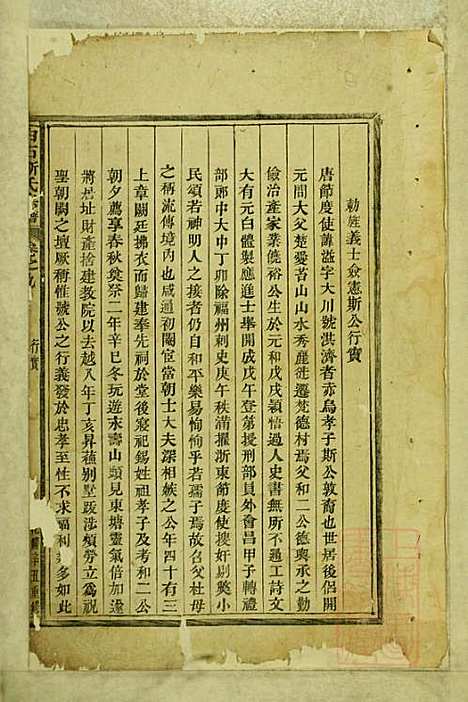 勅旌義士僉憲斯公行實
唐節度使諱溢字大川號洪濟者赤烏孝子斯公敦裔也世居後侶開
元間大父楚愛省山山水秀麗徙遷梵德村焉父和二公德輿承之勤
儉治產家業饒裕公生於元和戊戌穎悟過人史書無所不通工詩文
大有元白體製應進士舉開成戊午登第授刑部員外會昌甲子轉禮
部郎中大中丁卯除福州刺史庚午秩滿擢浙東節度使搜奸剔獘小
民頌若神明人之接者仍自和平樂易恂恂乎若孺子焉故召父杜母
之稱流傳境内也咸通初閹宦當朝士大夫深相嫉之公年四十有三
上章闕廷拂衣而歸建奉先祠於堂後寢祀錫姓祖孝子及考和二公
朝夕薦享春秋奠祭二年辛巳冬玩遊永壽山頭見東塘靈氣倍加遠
將居址財產捨建教院以去越八年丁亥昇蘓別墅跋涉頻勞立為祝
聖朝嗣之壇厥稍惟號公之行義發於忠孝至性不求福利多如此
斯氏
行實